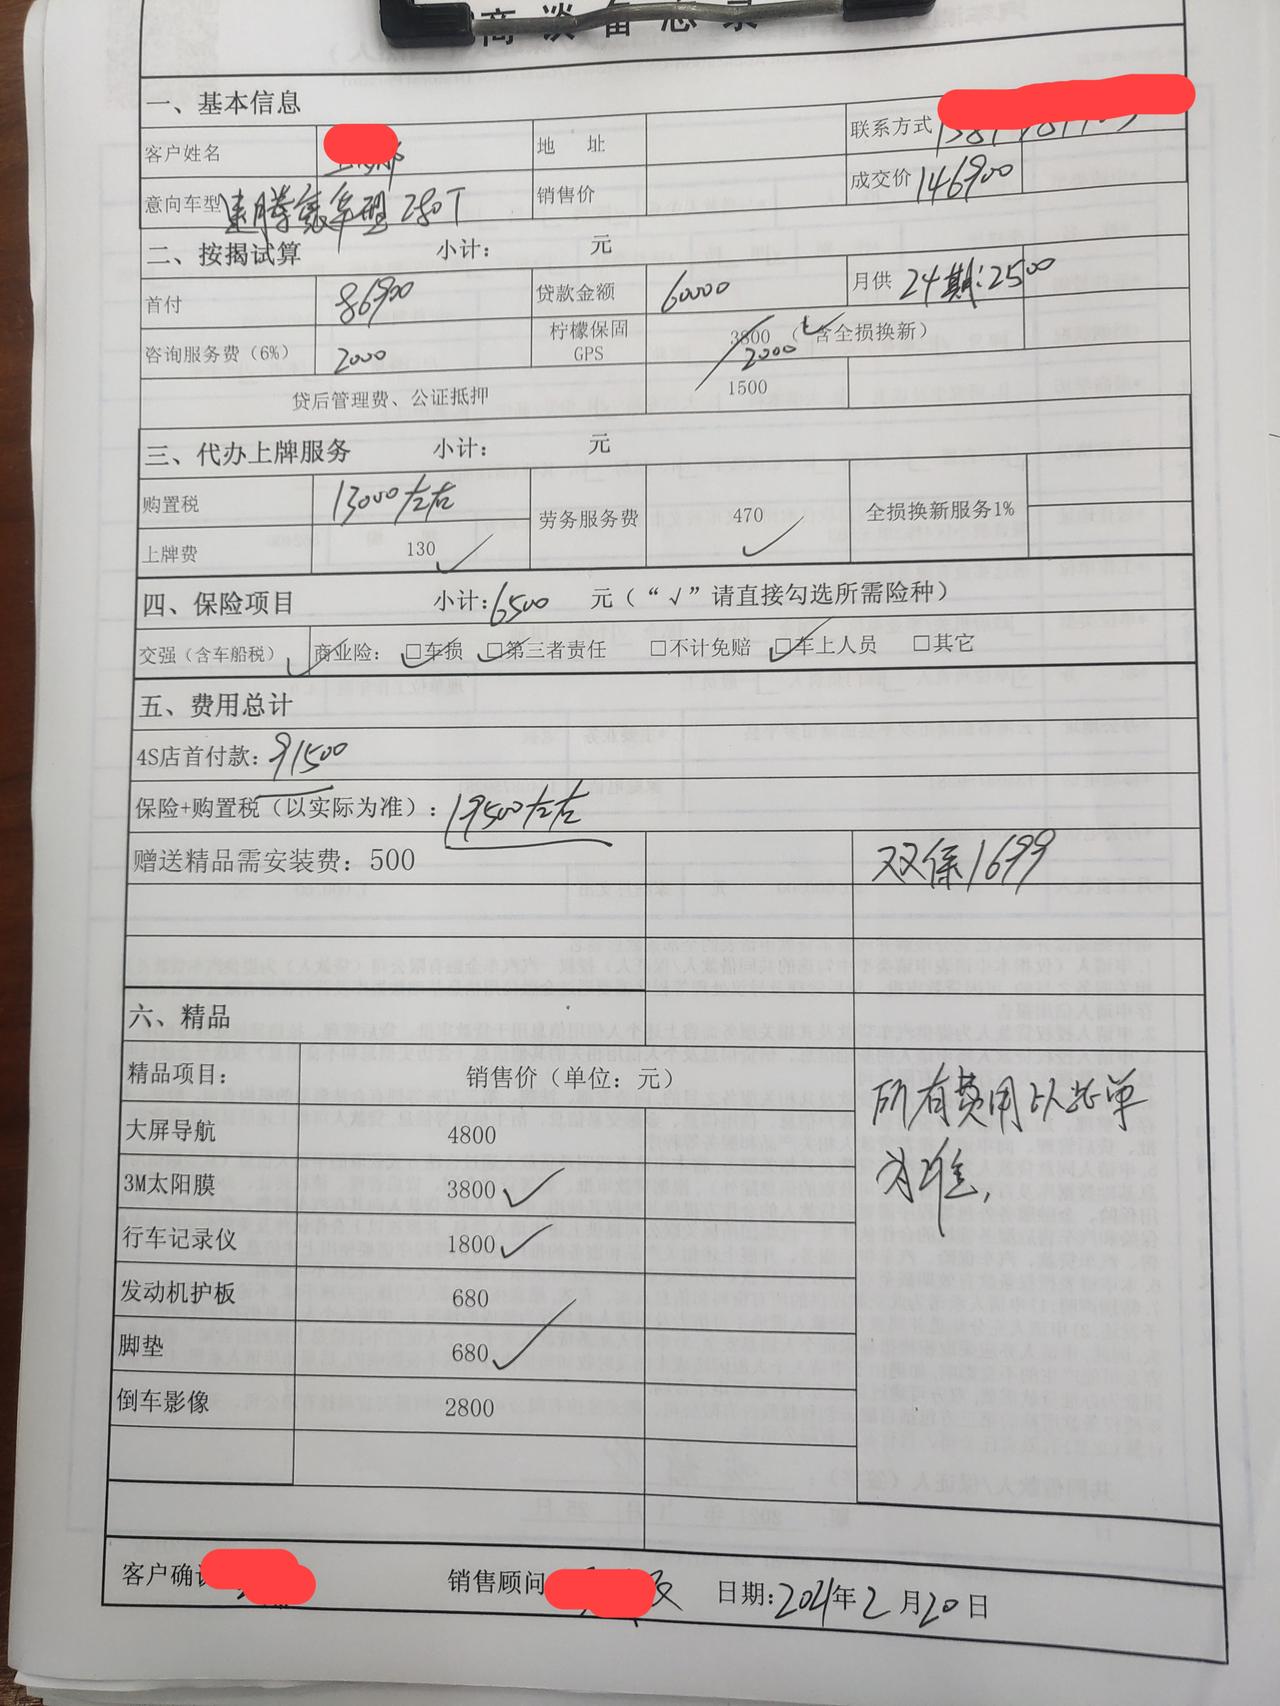 商谈备忘录
一、基本信息
客户姓名 地 址 联系方式
意向车型 速腾 车型 280T 销售价 成交价 146900
二、按揭试算 小计： 元
首付 86900 贷款金额 60000 月供 24期：2500
咨询服务费（6%） 2000 柠檬保固GPS 3800（含全损换新） 2000
贷后管理费、公证抵押 1500
三、代办上牌服务 小计： 元
购置税 13000左右 劳务服务费 470 全损换新服务1%
上牌费 130
四、保险项目 小计：6500 元（“√”请直接勾选所需险种）
交强（含车船税） 商业险： □车损 □第三者责任 □不计免赔 □车上人员 □其它
五、费用总计
4S店首付款：91500
保险+购置税（以实际为准）：19500左右
赠送精品需安装费：500 双保1699
六、精品
精品项目： 销售价（单位：元）
大屏导航 4800
3M太阳膜 3800
行车记录仪 1800
发动机护板 680
脚垫 680
倒车影像 2800
所有费用以此单
为准，
客户确认 销售顾问 日期：2021年2月20日